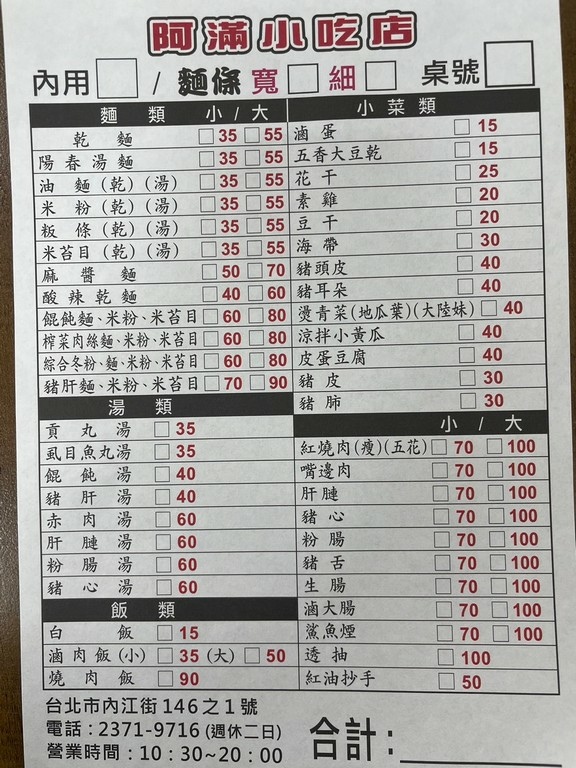 阿滿小吃店
內用□ / 麵條 寬□ 細□ 桌號□
麵 類 小 / 大
乾 麵 □35 □55
陽春湯麵 □35 □55
油 麵(乾)(湯) □35 □55
米 粉(乾)(湯) □35 □55
粄 條(乾)(湯) □35 □55
米苔目(乾)(湯) □35 □55
麻 醬 麵 □50 □70
酸辣乾麵 □40 □60
餛飩麵、米粉、米苔目 □60 □80
榨菜肉絲麵、米粉、米苔目 □60 □80
綜合冬粉、麵、米粉、米苔目 □60 □80
豬肝麵、米粉、米苔目 □70 □90
湯 類
貢 丸 湯 □35
虱目魚丸湯 □35
餛 飩 湯 □40
豬 肝 湯 □40
赤 肉 湯 □60
肝 腱 湯 □60
粉 腸 湯 □60
豬 心 湯 □60
飯 類
白 飯 □15
滷肉飯(小) □35 (大) □50
燒 肉 飯 □90
小 菜 類
滷 蛋 □15
五香大豆乾 □15
花 干 □25
素 雞 □20
豆 干 □20
海 帶 □30
豬頭皮 □40
豬耳朵 □40
燙青菜(地瓜葉)(大陸妹) □40
涼拌小黃瓜 □40
皮蛋豆腐 □40
豬 皮 □30
豬 肺 □30
小 / 大
紅燒肉(瘦)(五花) □70 □100
嘴邊肉 □70 □100
肝腱 □70 □100
豬 心 □70 □100
粉 腸 □70 □100
豬 舌 □70 □100
生 腸 □70 □100
滷大腸 □70 □100
鯊魚煙 □70 □100
透 抽 □100
紅油抄手 □50
台北市內江街146之1號
電話:2371-9716(週休二日)
營業時間:10:30~20:00
合計: